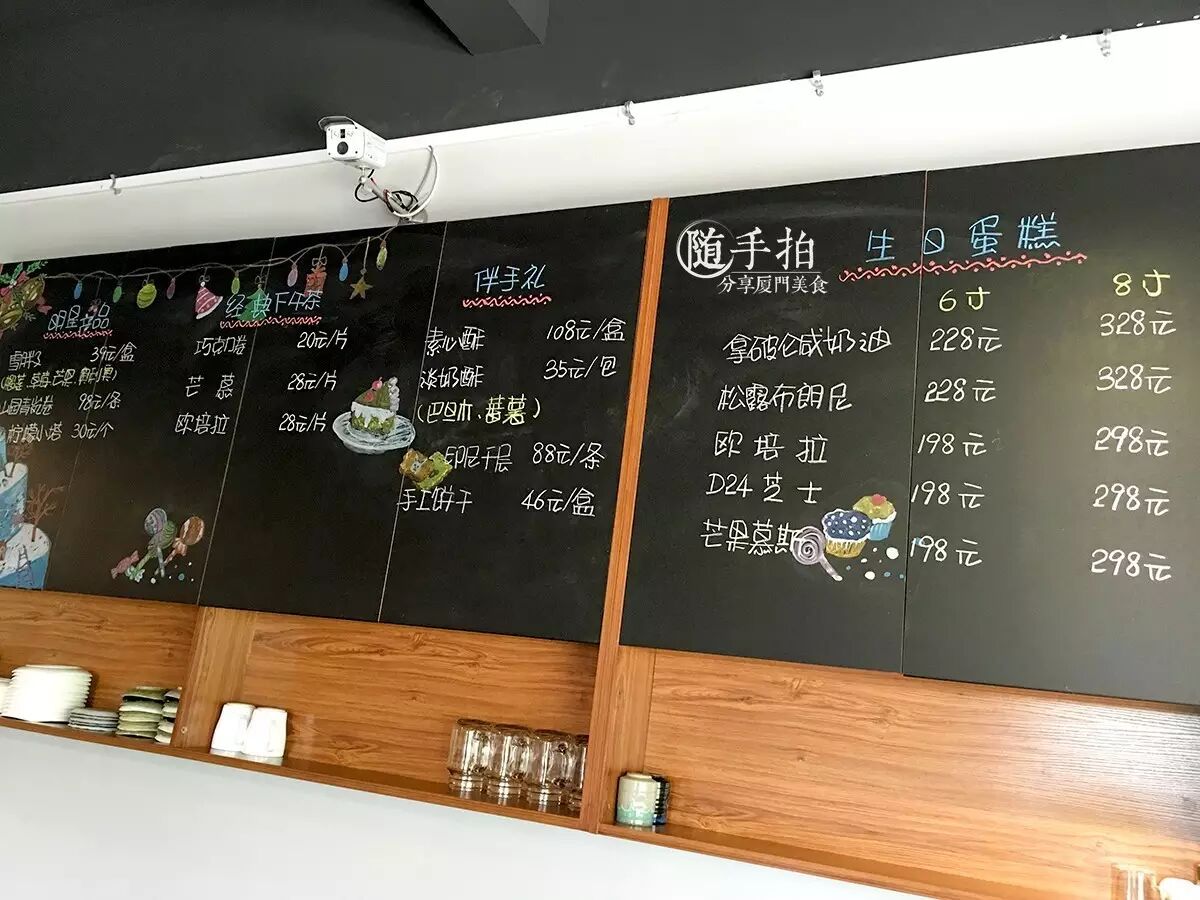 明星产品
雪胖子 39元/盒
(榴莲、草莓、芒果、
山园青柠卷 98元/条
柠檬小塔 30元/个
经典下午茶
巧克力卷 20元/片
芒慕 28元/片
欧培拉 28元/片
伴手礼
素心酥 108元/盒
淡奶酥 35元/包
(巴旦木、蕃薯)
印尼千层 88元/条
手工饼干 46元/盒
随手拍
分享厦門美食
生日蛋糕
6寸 8寸
拿破仑咸奶油 228元 328元
松露布朗尼 228元 328元
欧培拉 198元 298元
D24芝士 198元 298元
芒果慕斯 198元 298元